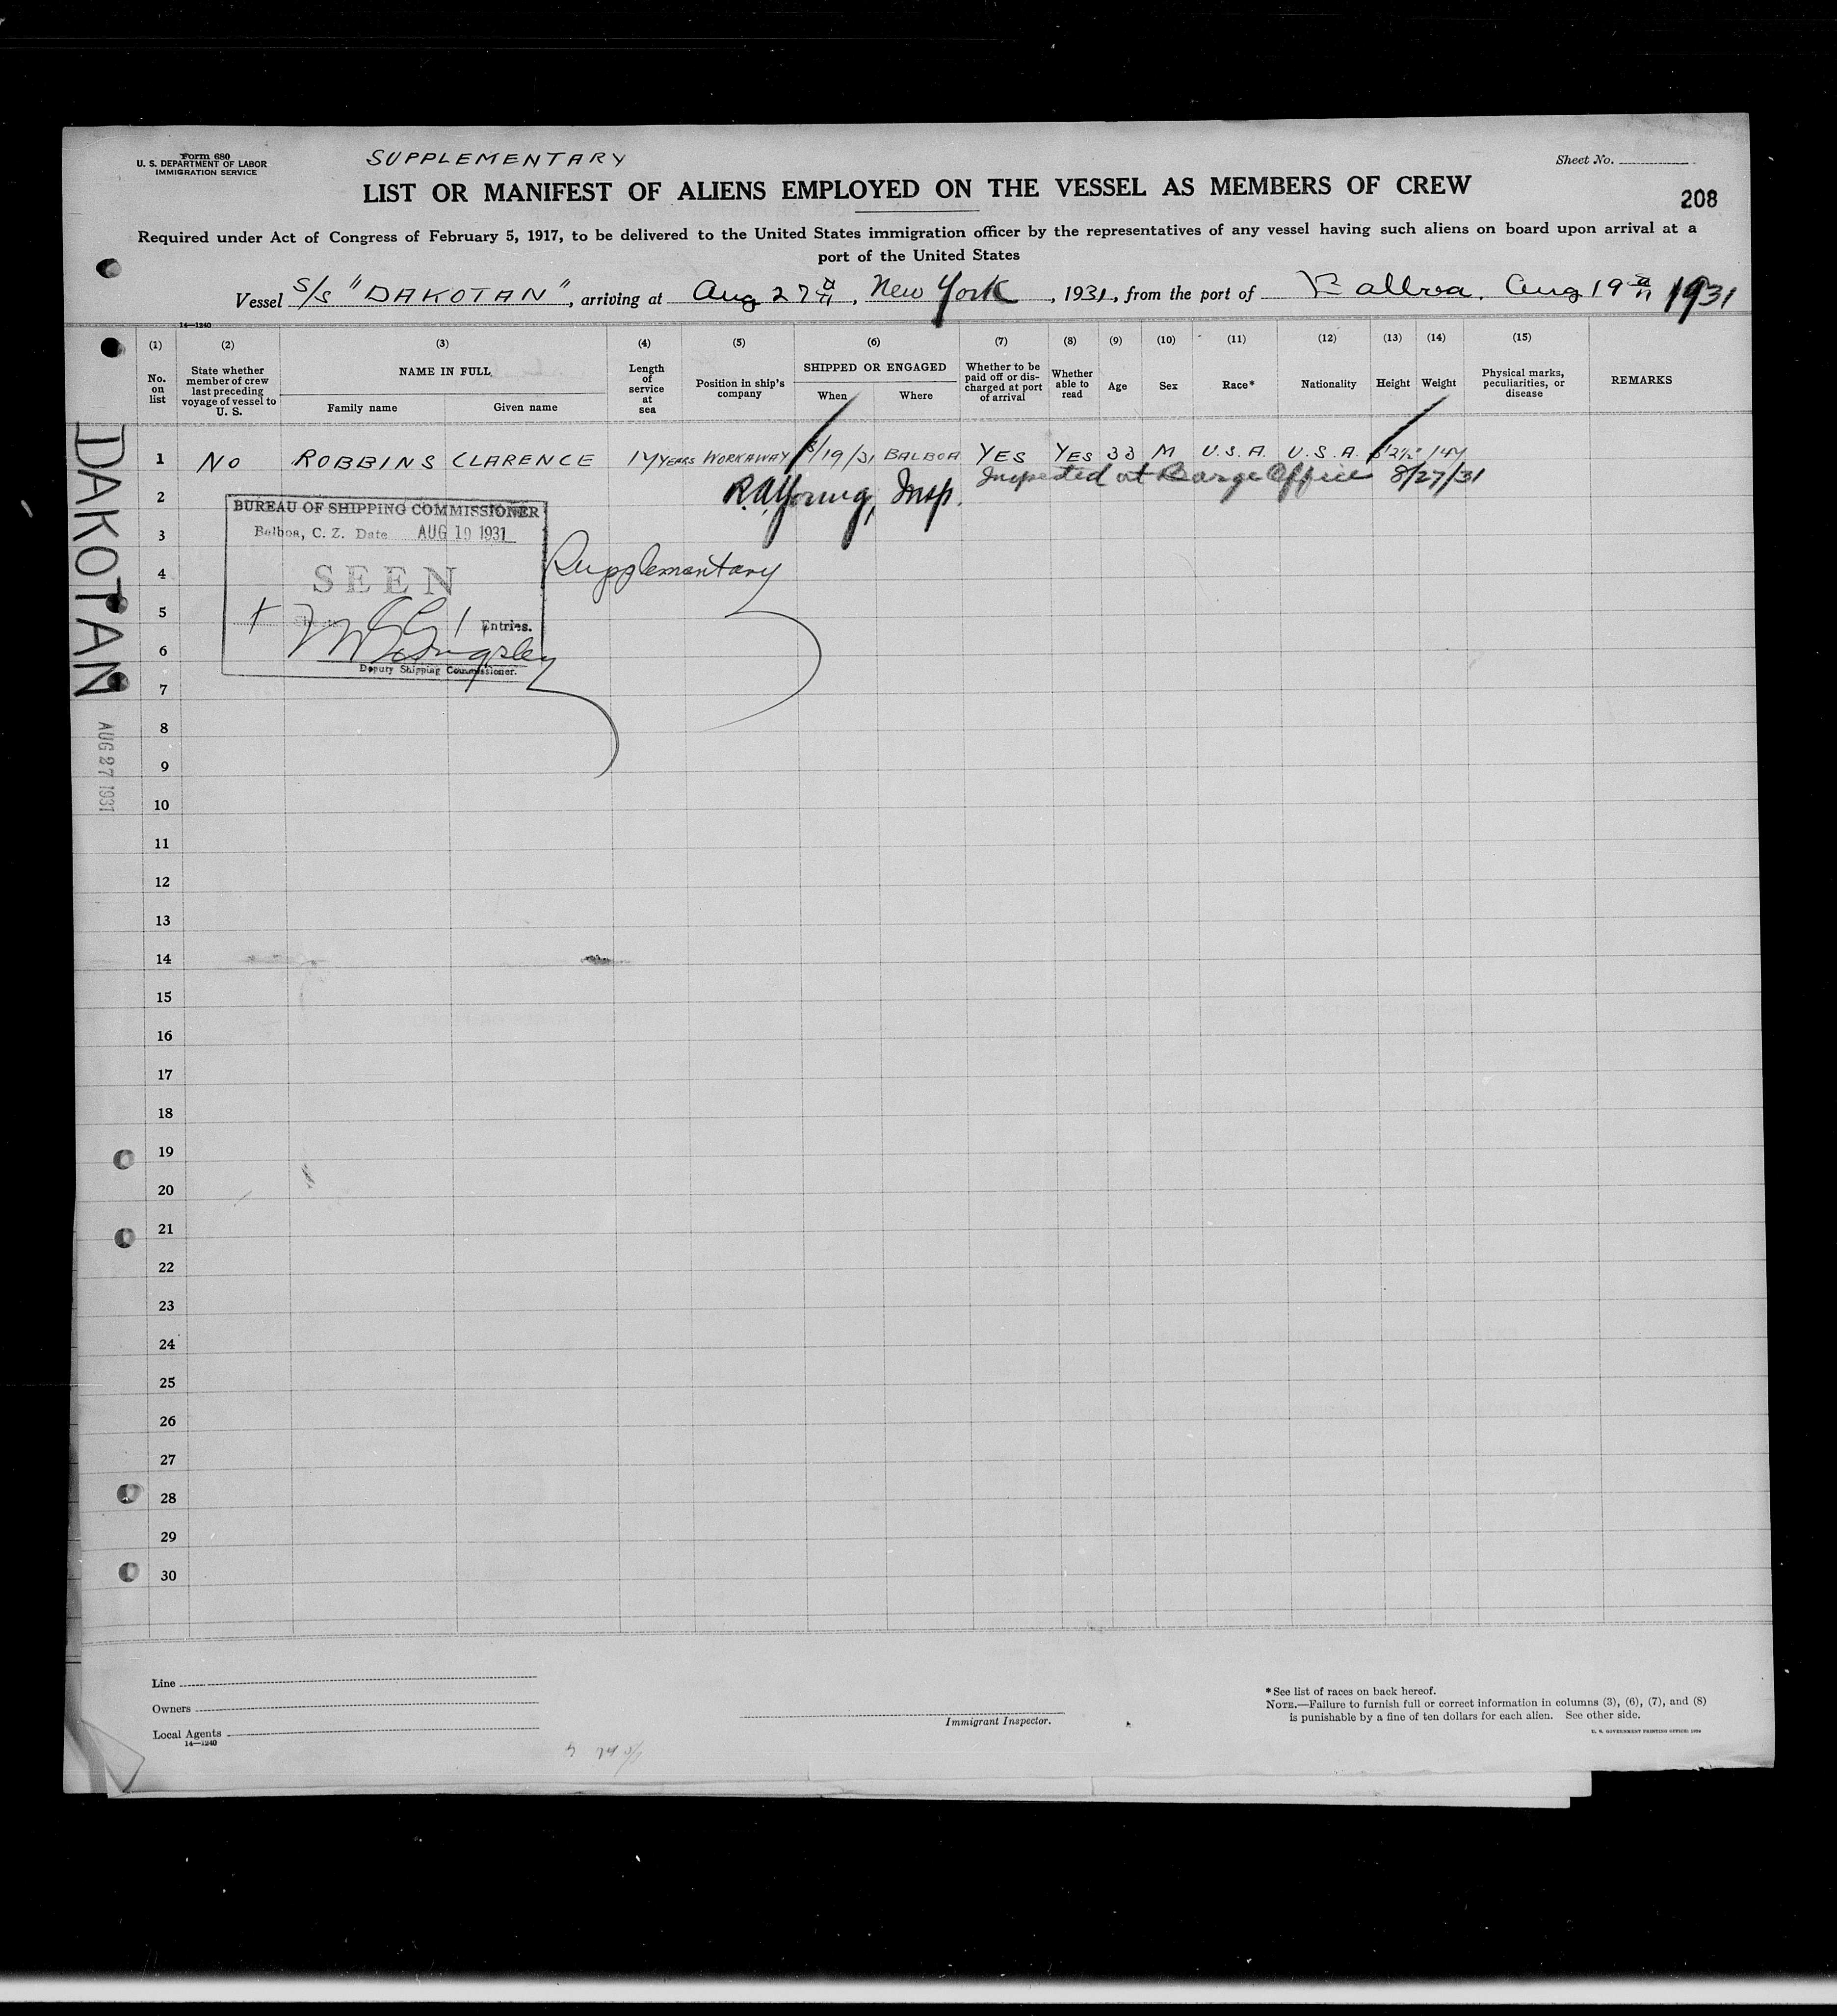 Form 680
U. S. DEPARTMENT OF LABOR
IMMIGRATION SERVICE
SUPPLEMENTARY
Sheet No.
LIST OR MANIFEST OF ALIENS EMPLOYED ON THE VESSEL AS MEMBERS OF CREW
208
Required under Act of Congress of February 5, 1917, to be delivered to the United States immigration officer by the representatives of any vessel having such aliens on board upon arrival at a
port of the United States
Vessel S/S "DAKOTAN", arriving at Aug 27th, New York, 1931, from the port of Balboa. Aug 19th 1931
14—1240
(1) (2) (3) (4) (5) (6) (7) (8) (9) (10) (11) (12) (13) (14) (15)
No. on list
State whether member of crew last preceding voyage of vessel to U. S.
NAME IN FULL
Family name
Given name
Length of service at sea
Position in ship's company
SHIPPED OR ENGAGED
When
Where
Whether to be paid off or discharged at port of arrival
Whether able to read
Age
Sex
Race*
Nationality
Height
Weight
Physical marks, peculiarities, or disease
REMARKS
1 NO ROBBINS CLARENCE YEARS WORKAWAY 8/19/31 BALBOA YES YES 33 M U.S.A. U.S.A.
Inspected at Barge Office 8/27/31
2 R.A. Young, Insp.
BUREAU OF SHIPPING COMMISSIONER
Balboa, C. Z. Date AUG 19 1931
3
Supplementary
4
SEEN
5
1 Entries.
6
Deputy Shipping Commissioner.
7
8
9
10
11
12
13
14
15
16
17
18
19
20
21
22
23
24
25
26
27
28
29
30
DAKOTAN
AUG 27 1931
Line
Owners
Local Agents
14—1240
Immigrant Inspector.
*See list of races on back hereof.
NOTE.—Failure to furnish full or correct information in columns (3), (6), (7), and (8)
is punishable by a fine of ten dollars for each alien. See other side.